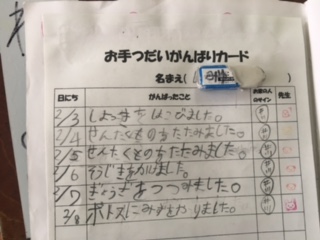 お手つだいがんばりカード
名まえ(
日にち がんばったこと お家の人のサイン 先生
2/3 しょっきをはこびました。
2/4 せんたくものをたたみました。
2/5 せんたくものをたたみました。
2/6 そうじをがけました。
2/7 ぎょうざをつつみました。
2/8 ポトスにみずをやりました。